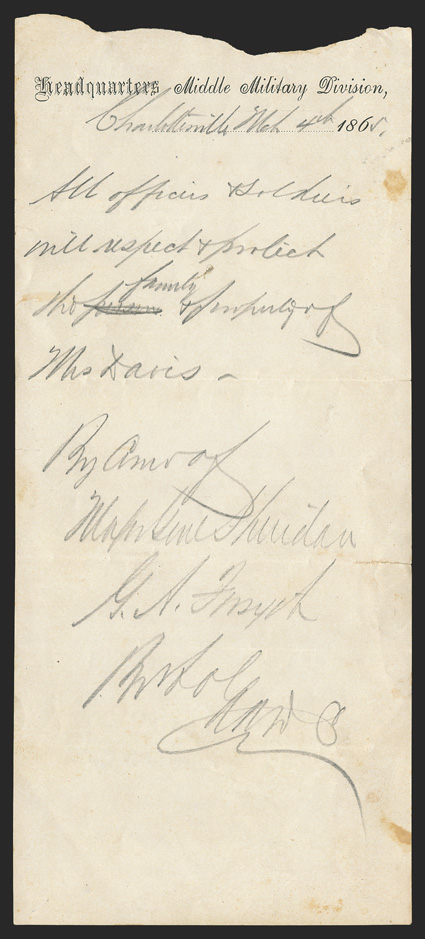 Headquarters Middle Military Division,
Charlottesville Mch 4th 1865.
All officers & soldiers
will respect & protect
family
the person & property of
Mrs Davis –
By Com of
Maj Genl Sheridan
G. A. Forsyth